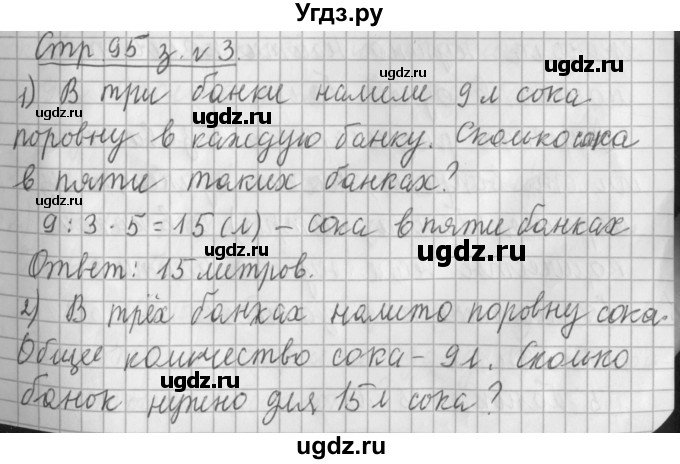 Угдз.ру
Стр 95 з. № 3.
1) В три банки налили 9 л сока
поровну в каждую банку. Сколько сока
в пяти таких банках?
9 : 3 · 5 = 15 (л) – сока в пяти банках
Ответ: 15 литров.
2) В трёх банках налито поровну сока.
Общее количество сока – 9 л. Сколько
банок нужно для 15 л сока?
ugdz.ru
ugdz.ru
ugdz.ru
ugdz.ru
ugdz.ru
ugdz.ru
ugdz.ru
ugdz.ru
ugdz.ru